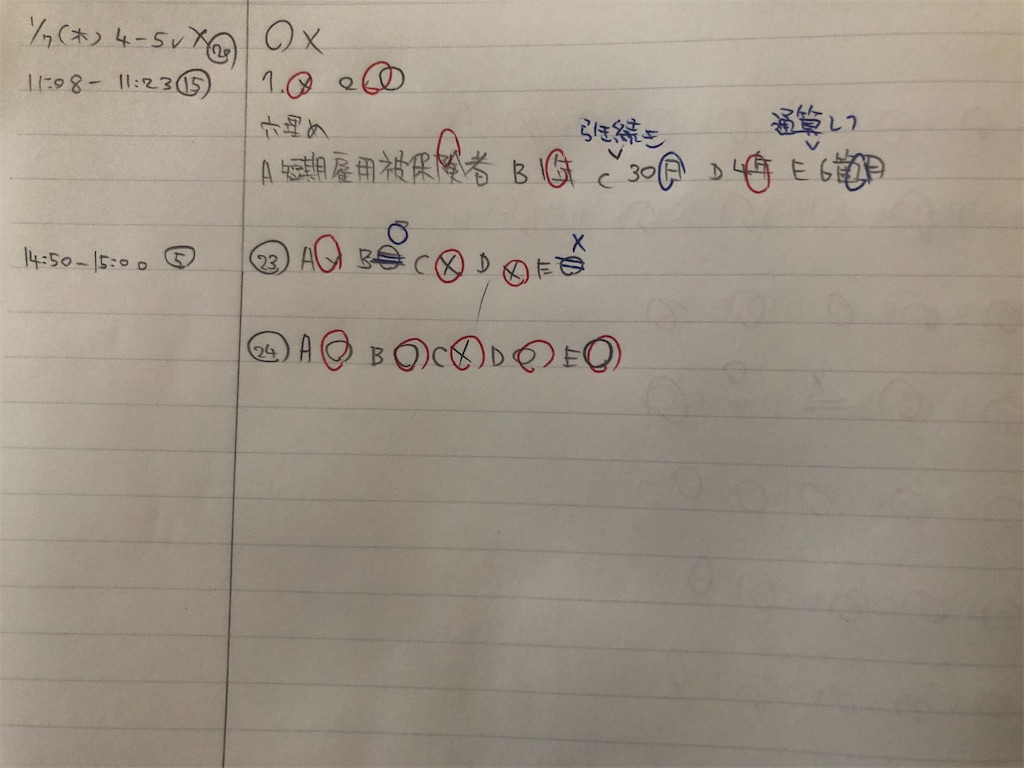 1/7(木) 4-5 ○×
11:08-11:23 ⑮ 1.× 2○
穴埋め 引き続き 通算して
A 短期雇用被保険者 B 1年 C 30日 D 4年 E 6箇月
14:50-15:00 ⑤ ㉓ A B ○ C × D × E ×
㉔ A ○ B ○ C × D ○ E ○